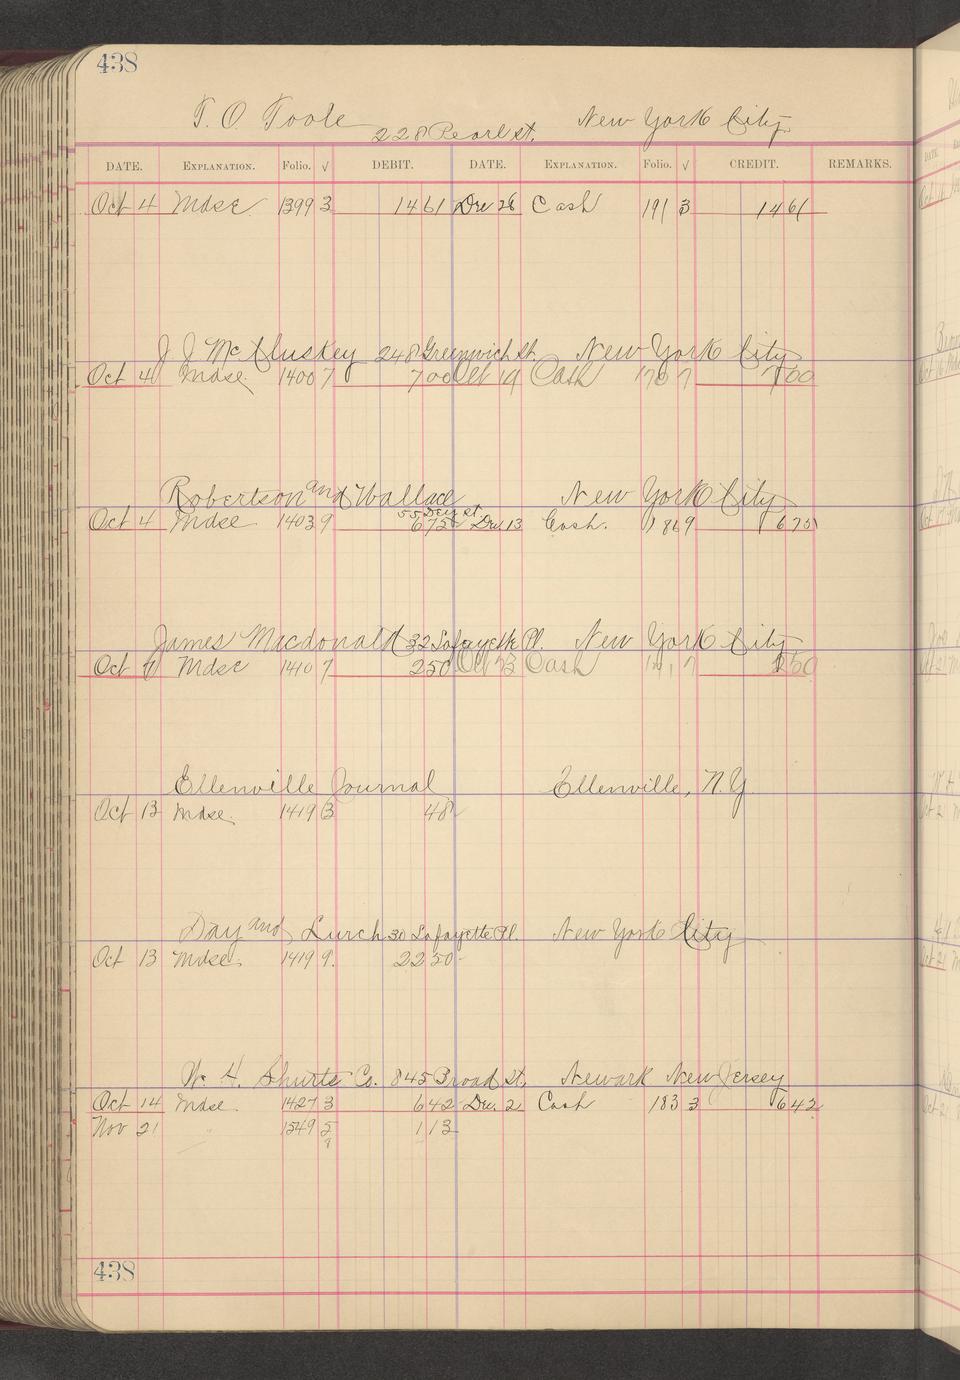 438
T. O. Toole 228 Pearl St. New York City
DATE. EXPLANATION. Folio. √ DEBIT. DATE. EXPLANATION. Folio. √ CREDIT. REMARKS.
Oct 4 Mdse 1399 3 14 61 Dec 28 Cash 191 3 14 61
J. J. McCluskey 248 Greenwich St. New York City
Oct 4 Mdse. 1400 7 7 00 Oct 19 Cash 170 7 7 00
Robertson and Wallace 55 Dey St. New York City
Oct 4 Mdse 1403 9 6 75 Dec 13 Cash. 186 9 6 75
James Macdonald 32 Lafayette Pl. New York City
Oct 7 Mdse 1410 7 2 50 Oct 23 Cash 171 7 2 50
Ellenville Journal Ellenville, N.Y.
Oct 13 Mdse. 1419 3 48
Day and Lurch 30 Lafayette Pl. New York City
Oct 13 Mdse. 1419 9 22 50
W. H. Shurts Co. 845 Broad St, Newark New Jersey
Oct 14 Mdse. 1427 3 6 42 Dec. 2 Cash 183 3 6 42
Nov 21 " 1549 5 1 13
438